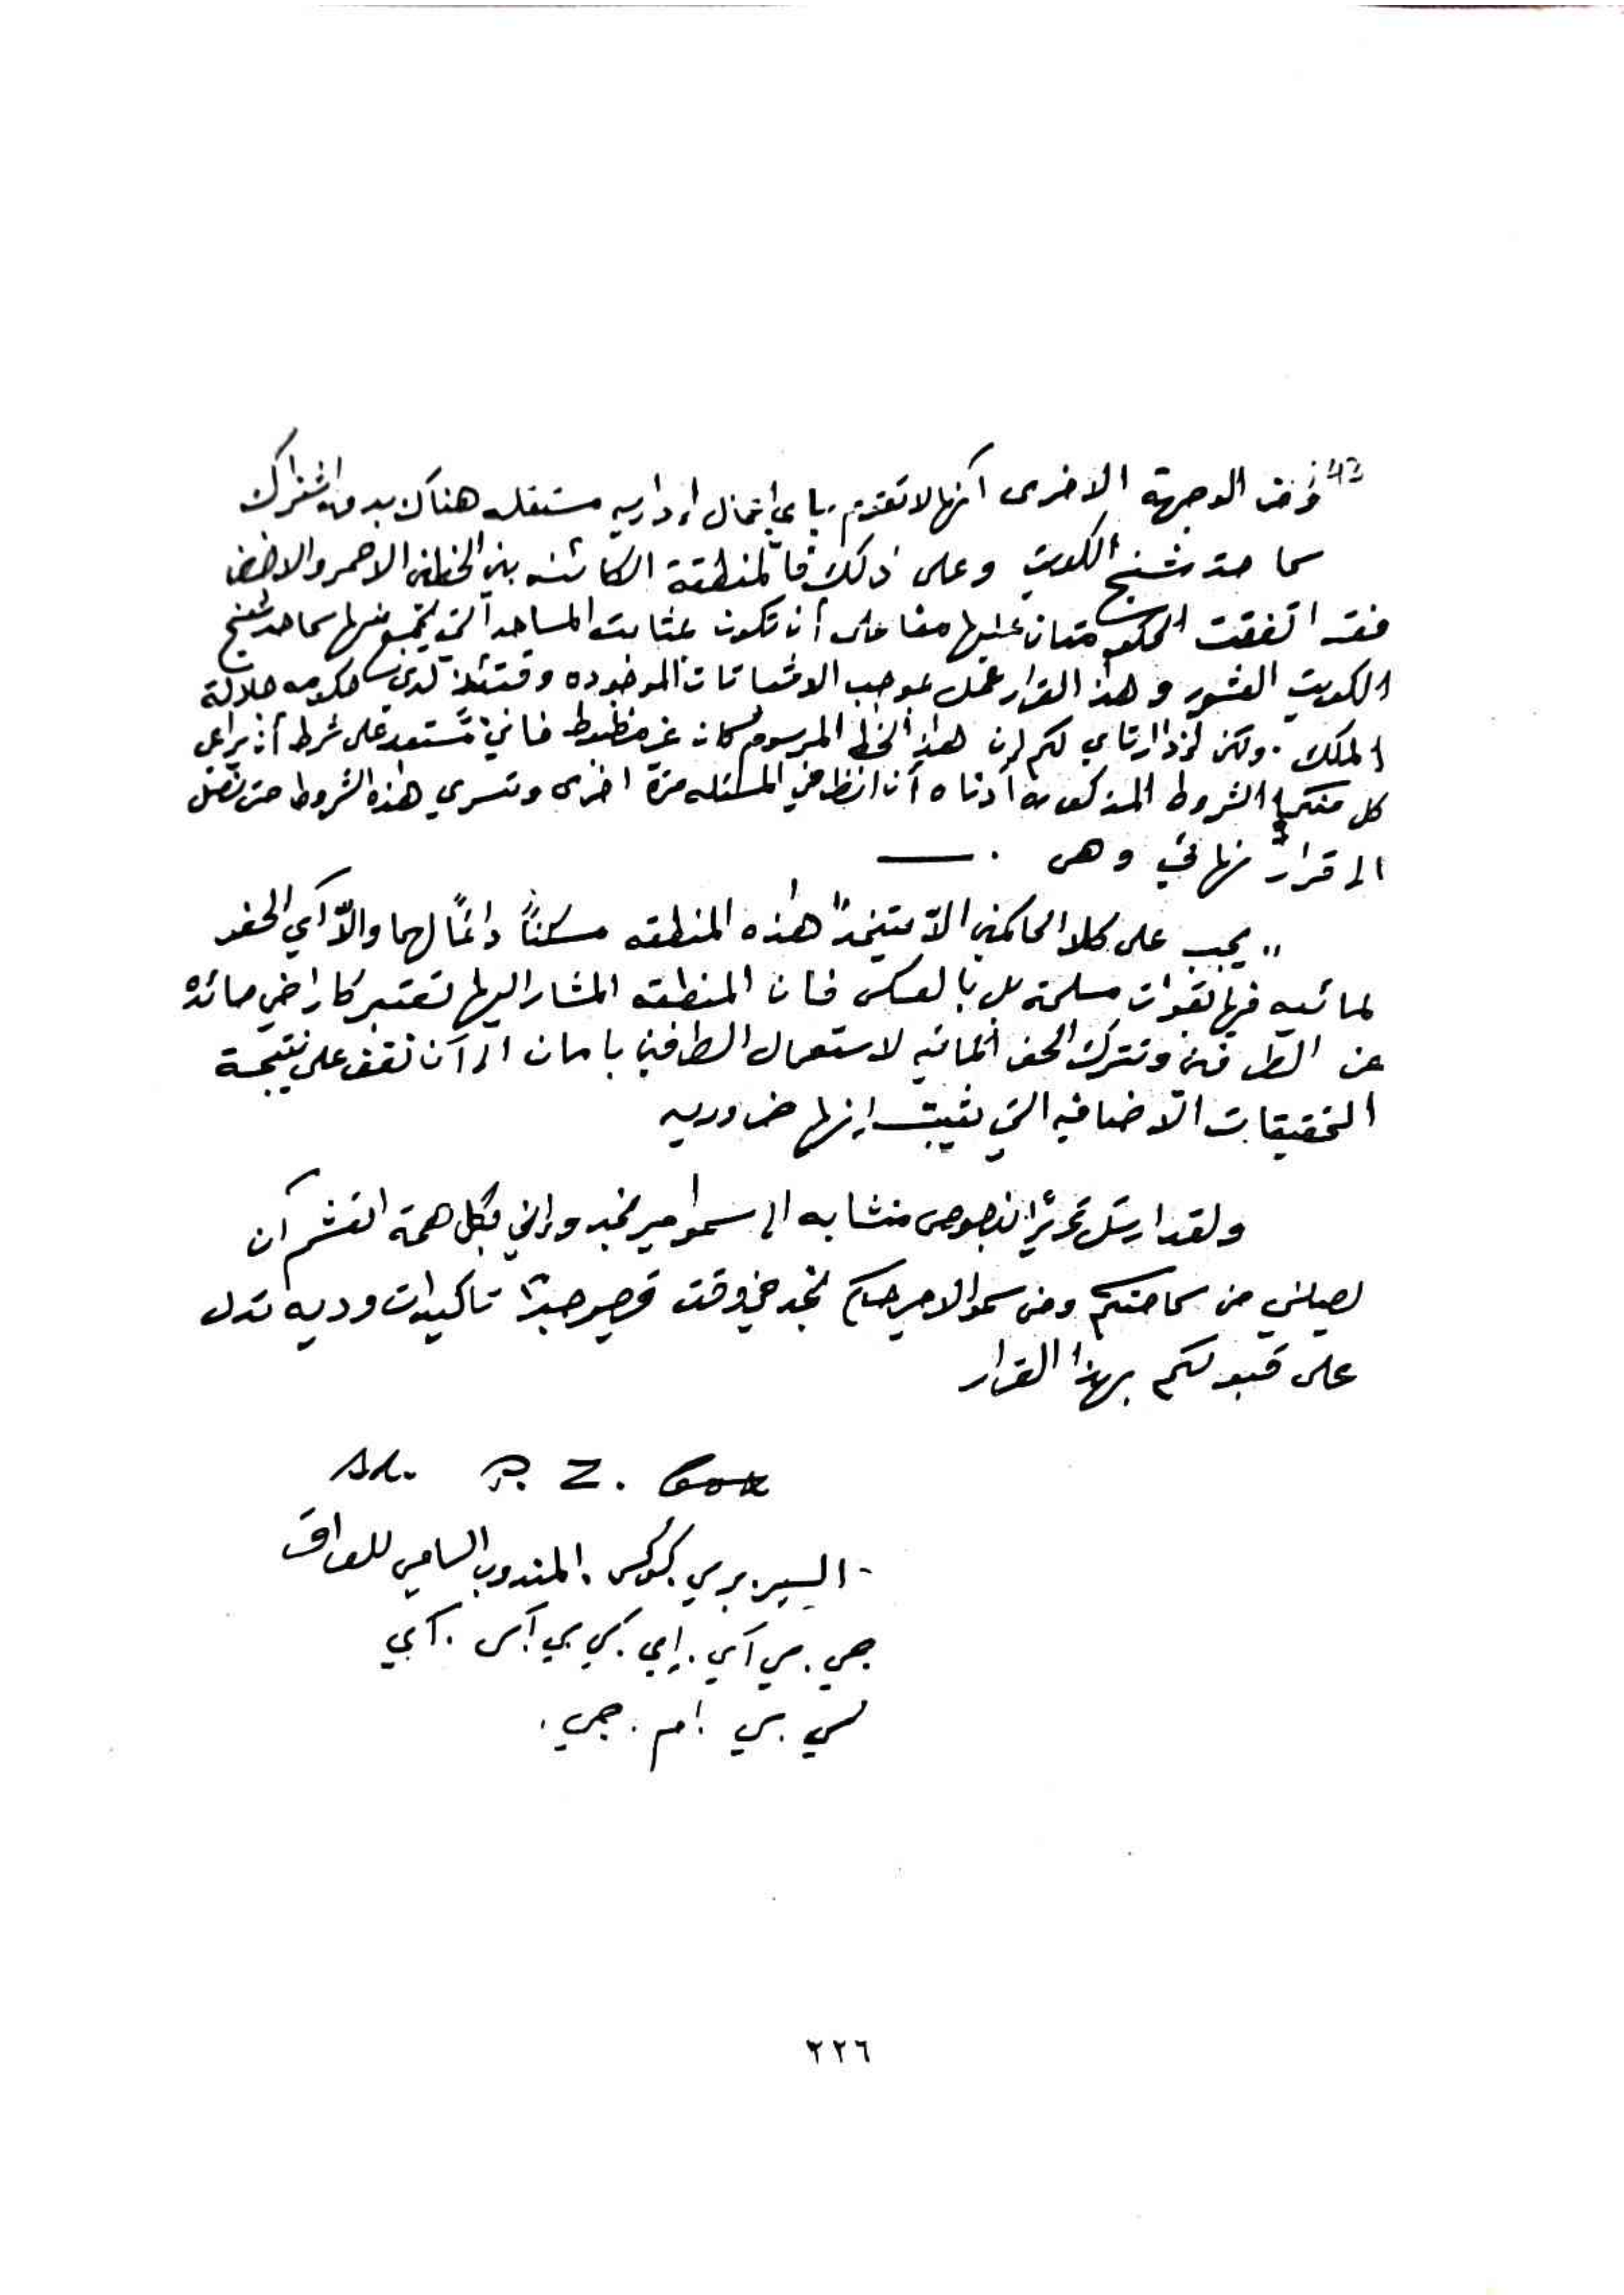 ومن الوجهة الاخرى أنها لا تقوم باي اعمال إداريه مستقله هناك بدون اشتراك
سماحة شيخ الكويت وعلى ذلك فالمنطقة الكائنه بين الخطين الاحمر والاخضر
فقد اتفقت الحكومتان عليها معا على أن تكون بمثابت المساحه التي يتمتع فيها سماحة شيخ
الكويت العشور وهذا القرار عمل بموجب الاثباتات الموجوده وقتئذ لدى حكومه جلالة
الملك . ولكن إذا ارتاي لكم إن هذا الخط المرسوم كان غير مظبوط فاني مستعد على شرط أن يراعى
كل منكما الشروط المذكوره أدناه أن انظر في المسئله مرة اخرى وتسري هذه الشروط حتى نصل
الى قرار نهائي وهى . —
" يجب على كلا الحاكمين الاّ يتخذا هذه المنطقه مسكناً دائماً لهما والاّ أي الحفر
لمائيه فيها بقوات مسلحة بل بالعكس فان المنطقه المشار اليها تعتبر كاراضي حائده
عن الطرفين وتترك الحفر المائيه لاستعمال الطرفين بامان الى أن نقف على نتيجة
التحقيقات الاضافيه التي يثبت إنها ضروريه
ولقد ارسلت تحريرًا بنصوص متشابه الى سمو امير نجد وإني بكل همة اتعشم أن
يصلني من سماحتكم ومن سمو الامير حاكم نجد في وقت قصير جدًا تاكيدات وديه تدل
على قبولكم بهذا القرار
Sd. P. Z. Cox
- السير برسي كوكس . المندوب السامي للعراق
جي . سي آي . إي . كي سي أس . آي
سي . بي . ام . جي .
٢٢٦